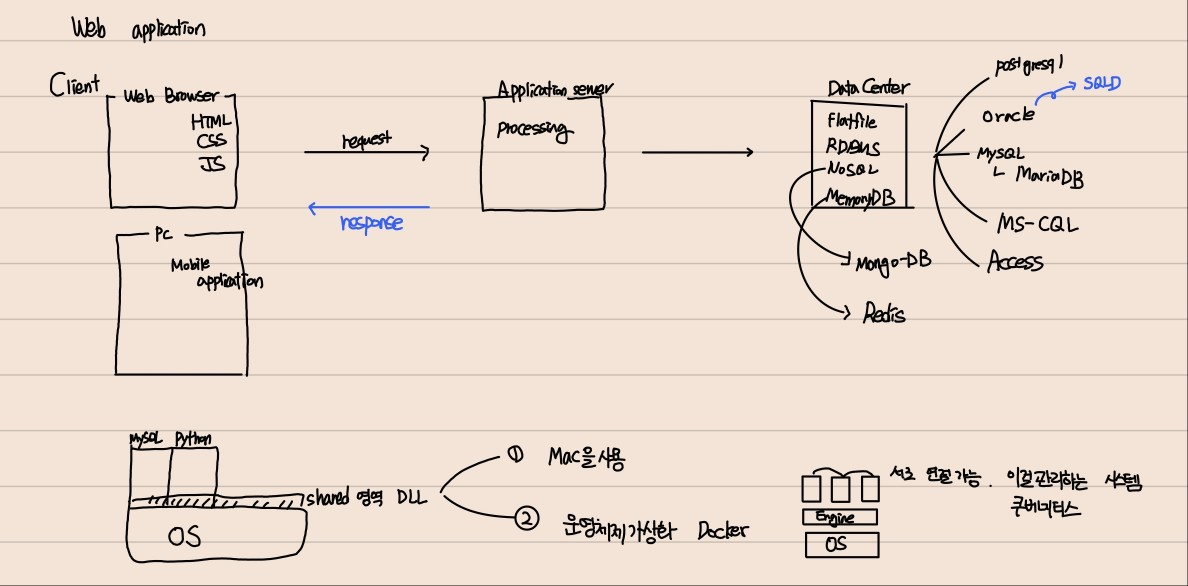 Web application
Client
Web Browser
HTML
CSS
JS
request
response
Application server
Processing
Data Center
Flatfile
RDBMS
NoSQL
MemoryDB
Mongo-DB
Redis
postgresql
Oracle
SQLD
MySQL
MariaDB
MS-CQL
Access
PC
Mobile
application
MySQL Python
OS
shared 영역 DLL
① Mac을 사용
② 운영체제 가상화 Docker
Engine
OS
서로 연결 가능. 이걸 관리하는 시스템
쿠버네티스